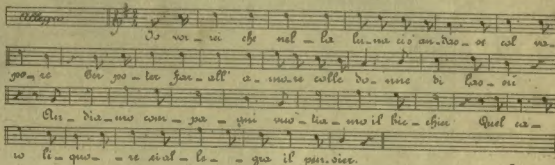 Allegro
Io vor-rei che nel-la lu-na ci s'an-das-se col va-
po-re Per po-ter far-all' a-mo-re colle don-ne di las-sù
An-dia-mo com-pa-gni vuo-tia-mo il bic-chier Quel ca-
ro li-quo-re ci al-le-gra il pen-sier.